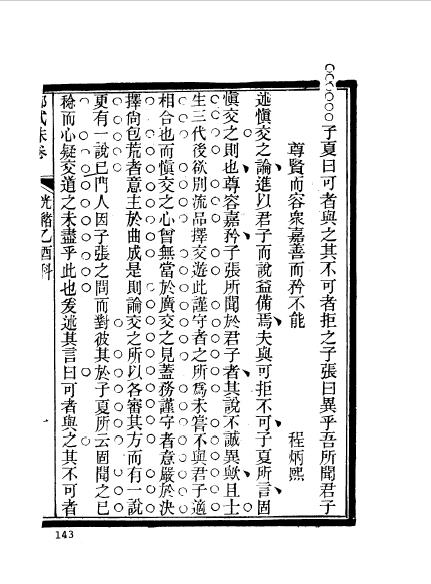 子夏曰可者與之其不可者拒之子張曰異乎吾所聞君子
尊賢而容衆嘉善而矜不能
程炳熙
述愼交之論進以君子而說益備焉夫與可拒不可子夏所言固
愼交之則也尊容嘉矜子張所聞於君子者其說不誠異歟且士
生三代後欲別流品擇交遊此謹守者之所爲未嘗不與君子適
相合也而愼交之心曾無當於廣交之見蓋務謹守者意嚴於決
擇尚包荒者意主於曲成是則論交之所以各審其方而有一說
更有一說已門人因子張之問而對彼其於子夏所云固聞之已
稔而心疑交道之未盡乎此也爰述其言曰可者與之其不可者
光緒乙酉科
一
143